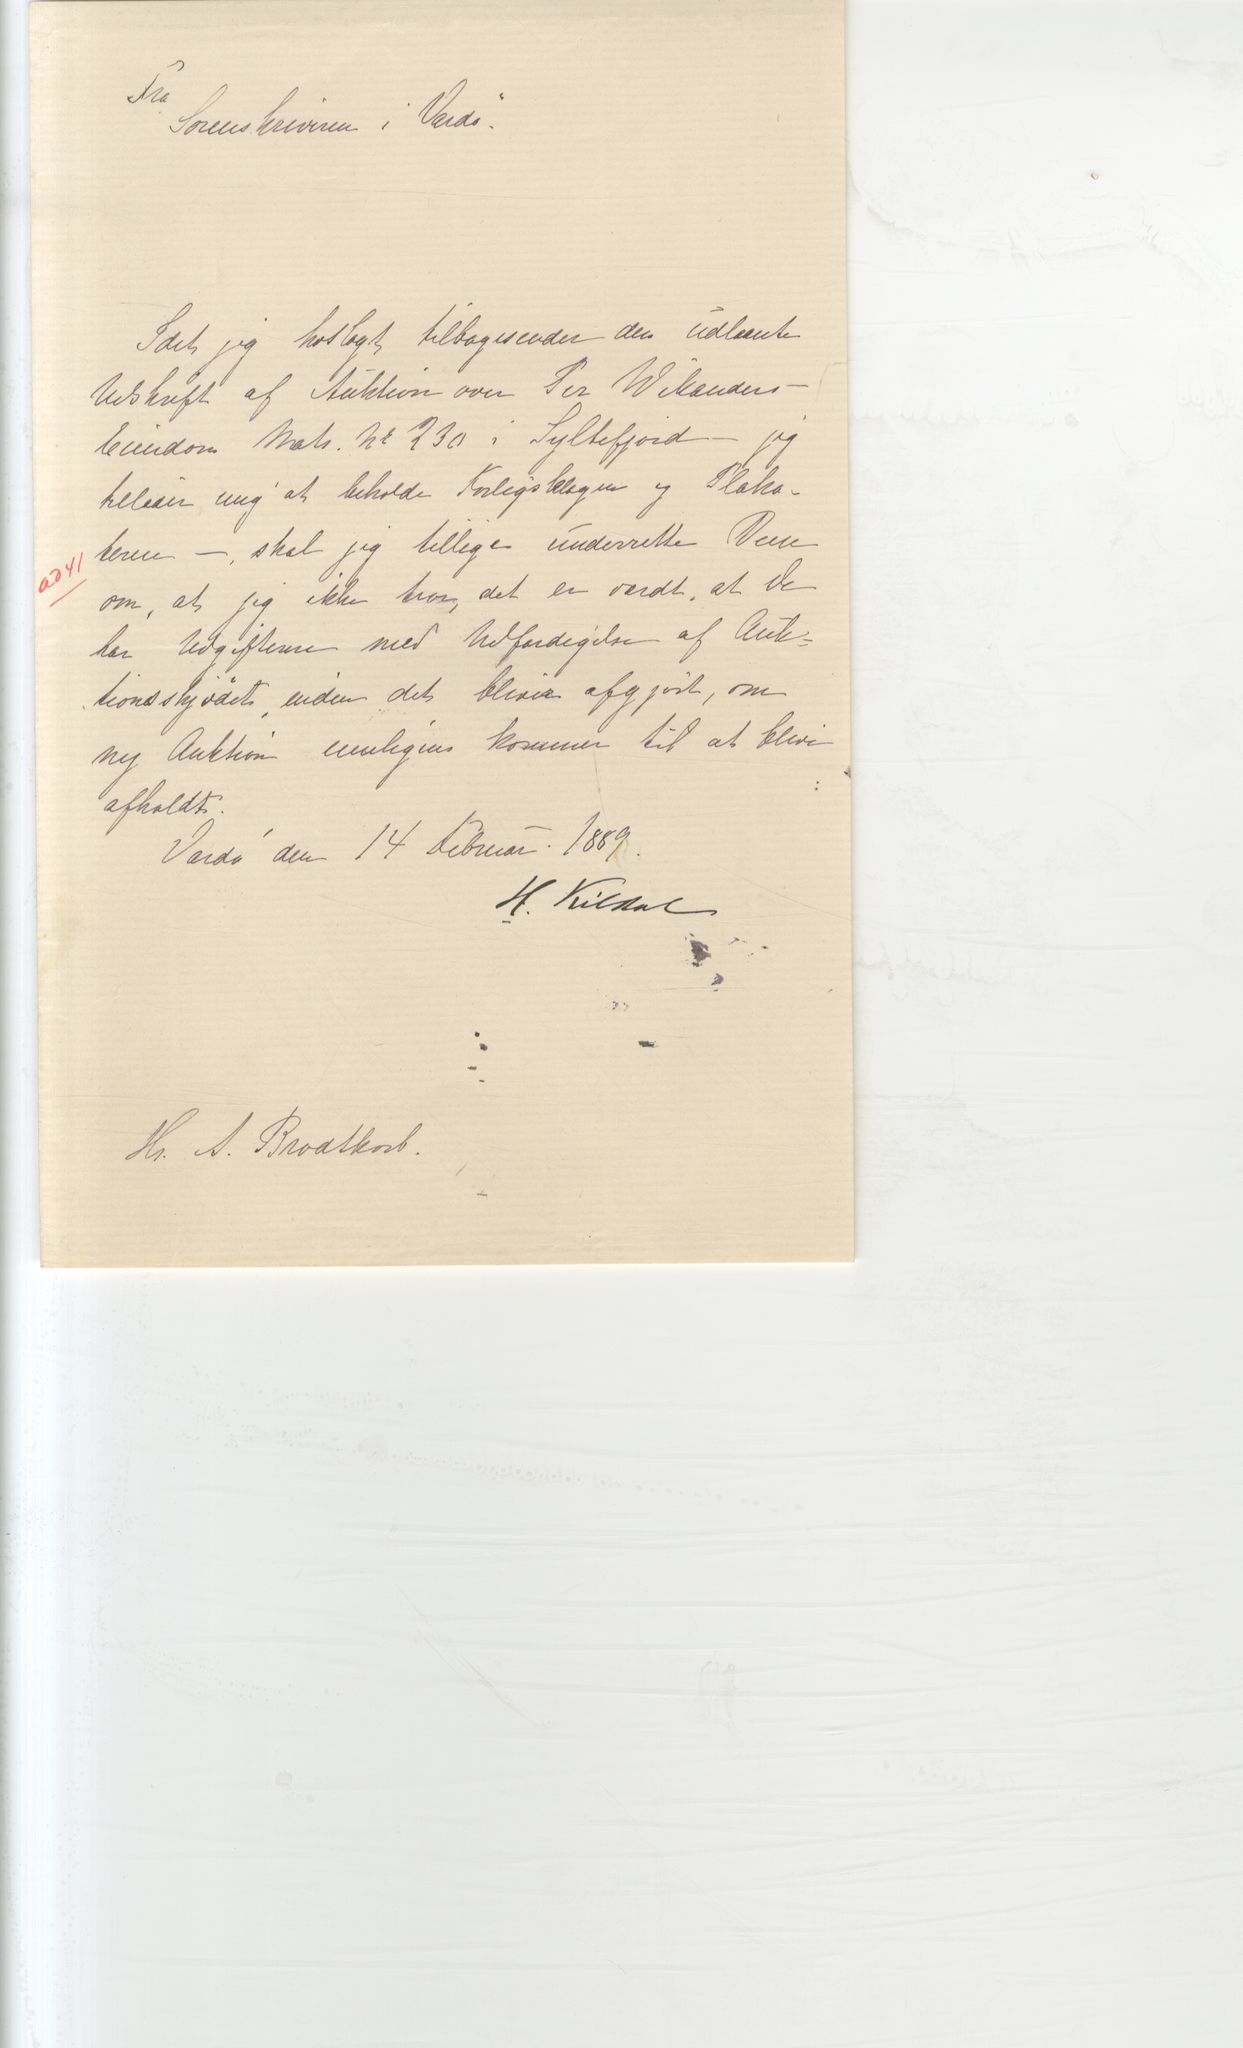 Fra
Sorenskriveren i Vardö.
Idet jeg hoslagt tilbagesender den udlaante
Udskrift af Auktion over Per Wikanders
Eiendom Matr. Nr 230 i Syltefjord – jeg
tillader mig at beholde Forligsklagen og Plaka-
terne –, skal jeg tillige underrette Dem
ad 41
om, at jeg ikke tror, det er værdt, at De
har Udgifterne med Udfærdigelse af Auk-
tionsskjödet, inden det bliver afgjort, om
ny Auktion muligens kommer til at blive
afholdt.
Vardö den 14 Februar 1889.
H. Kildal
Hr. A. Brodtkorb.